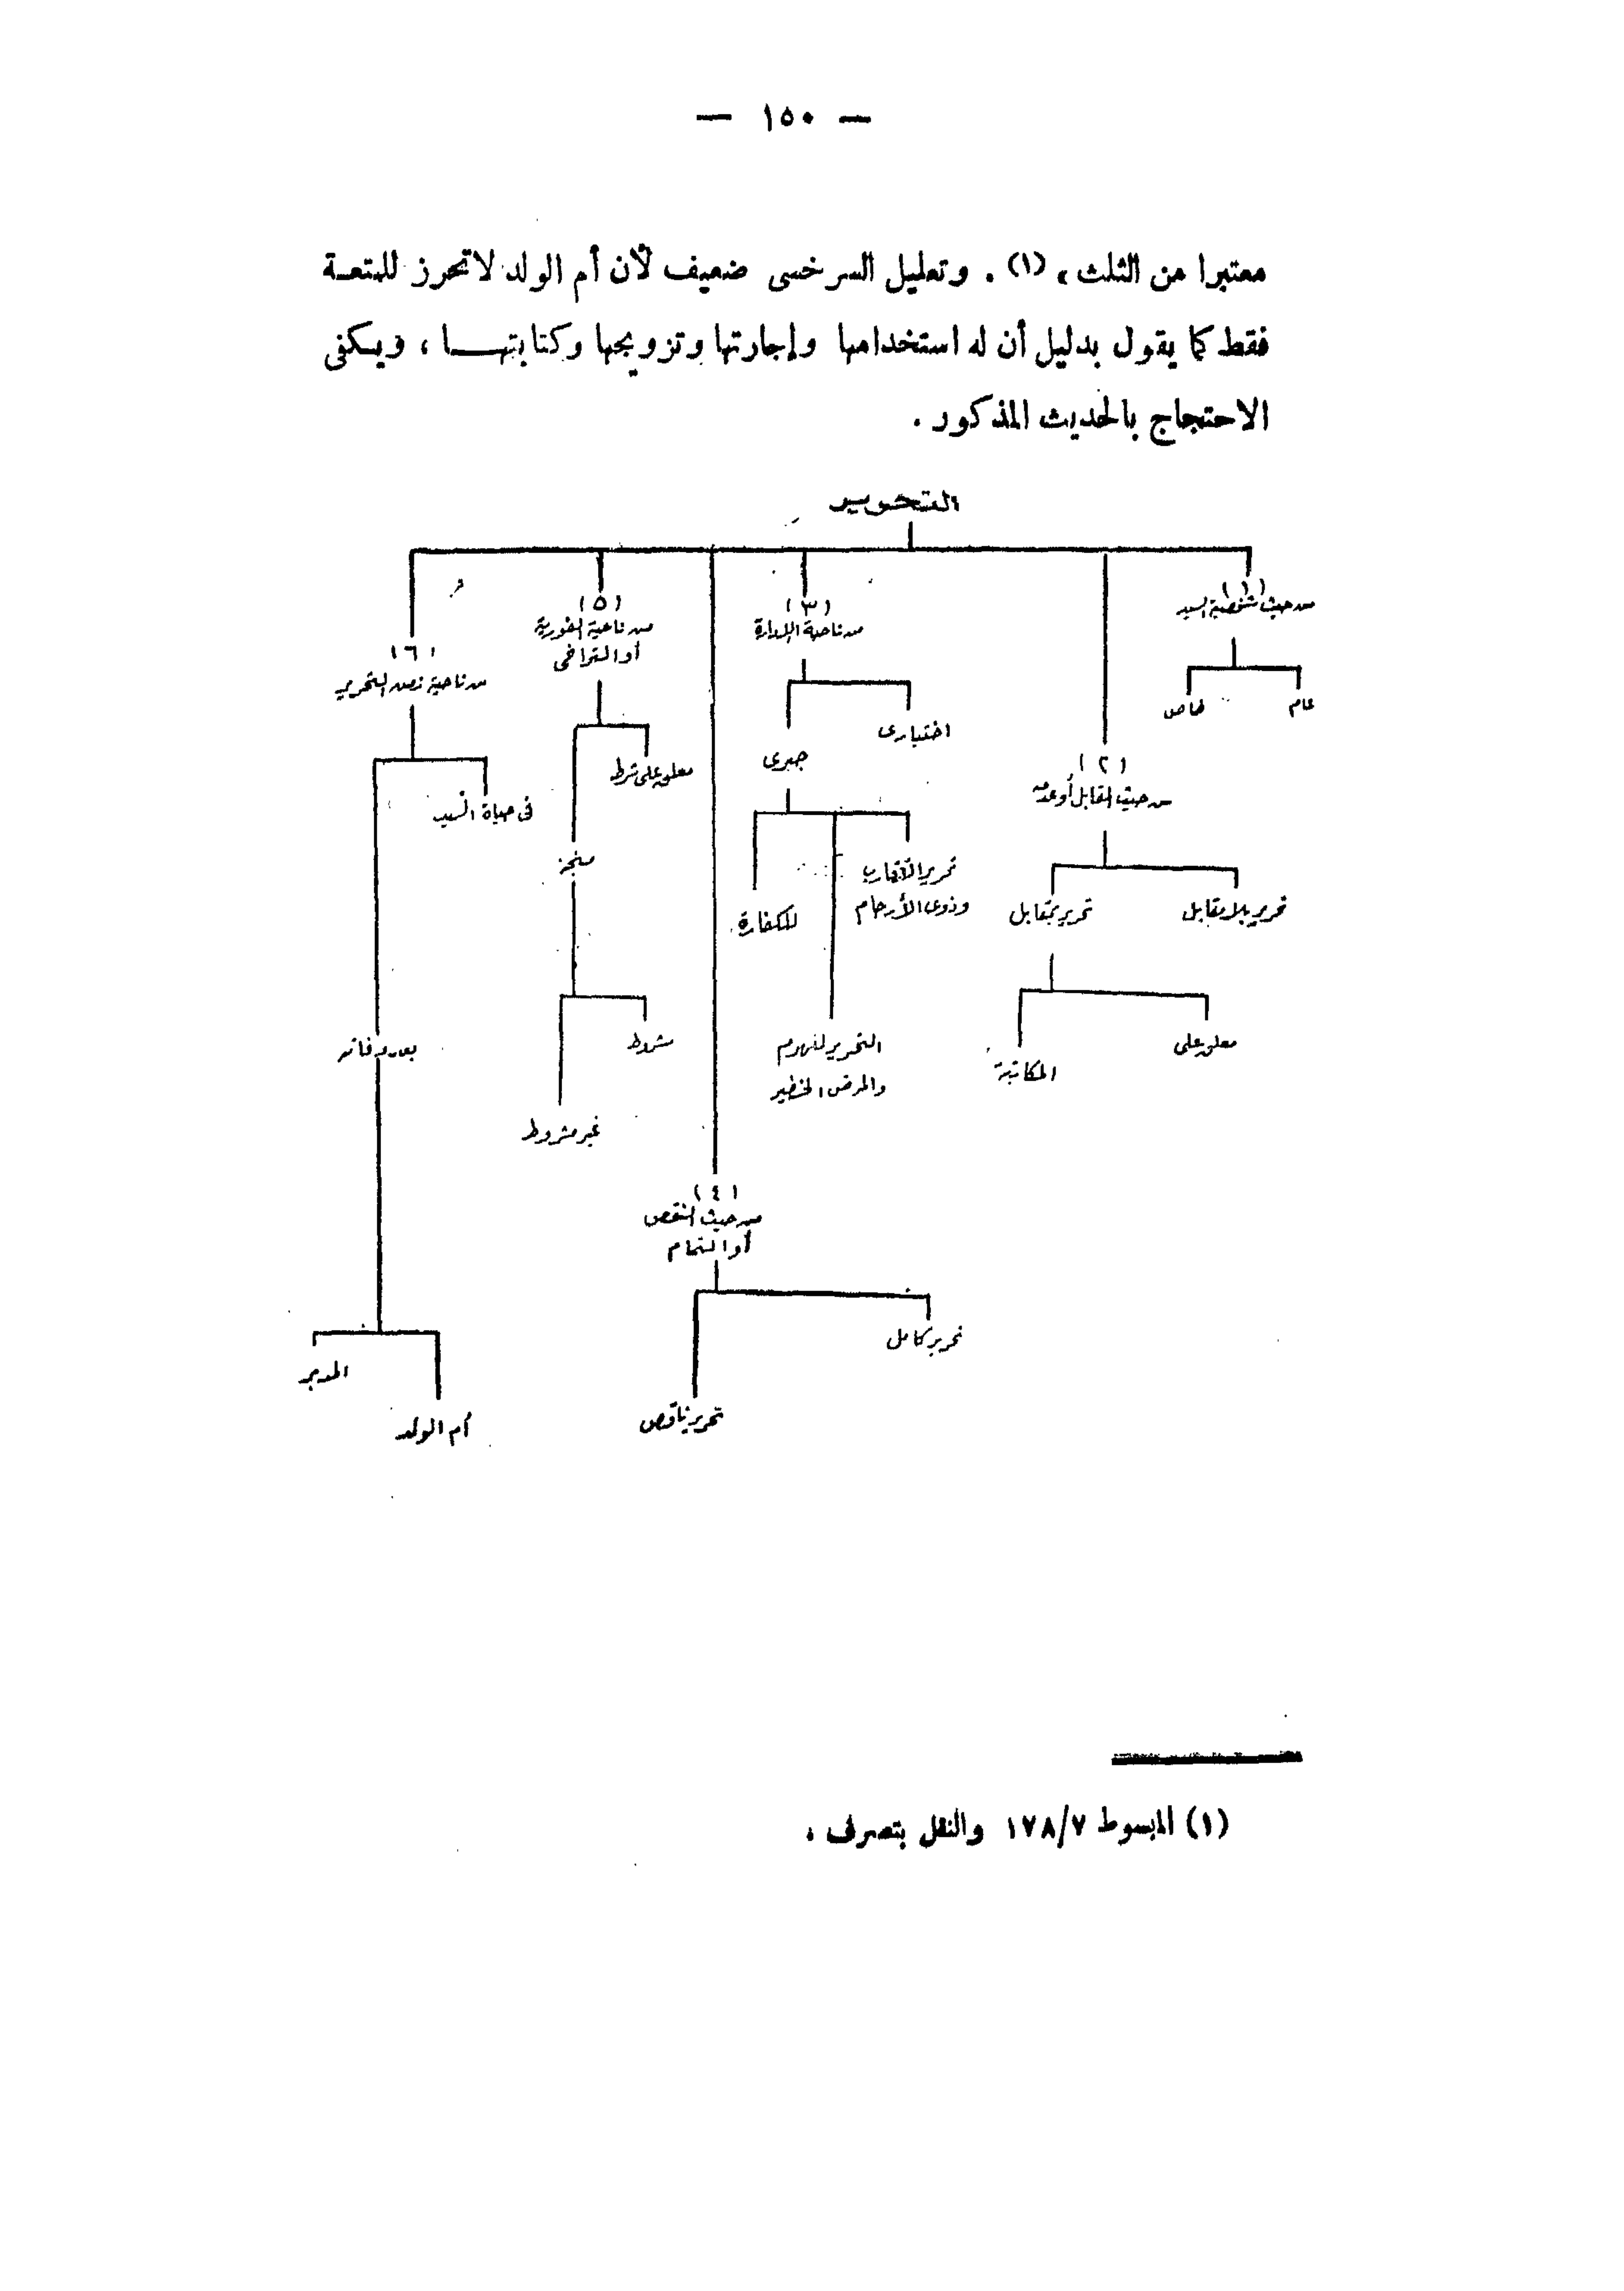 — ١٥٠ —
معتبرا من الثلث، (١) . وتعليل السرخسى ضعيف لأن أم الولد لا تحرز للمتعـة
فقط كما يقول بدليل أن له استخدامها وإجارتها وتزويجها وكتابتهـــا ، ويـكفى
الاحتجاج بالحديث المذكور .
التحرير
(١)
من حيث شخصية السيد
عام
خاص
(٢)
من حيث المقابل أو عدمه
تحرير بلا مقابل
تحرير بمقابل
معلق على
المكاتبة
(٣)
من ناحية الإرادة
اختيارى
جبرى
تحرير الأقارب
وذوى الأرحام
التحرير للهرم
والمرض الخطير
للكفارة
(٤)
من حيث النقص
أو التمام
تحرير كامل
تحرير ناقص
(٥)
من ناحية الفورية
أو التراخى
معلق على شرط
منجز
مشروط
غير مشروط
(٦)
من ناحية زمن التحرير
فى حياة السيد
بعد وفاته
أم الولد
المدبر
(١) المبسوط ١٧٨/٧ والنقل بتصرف .